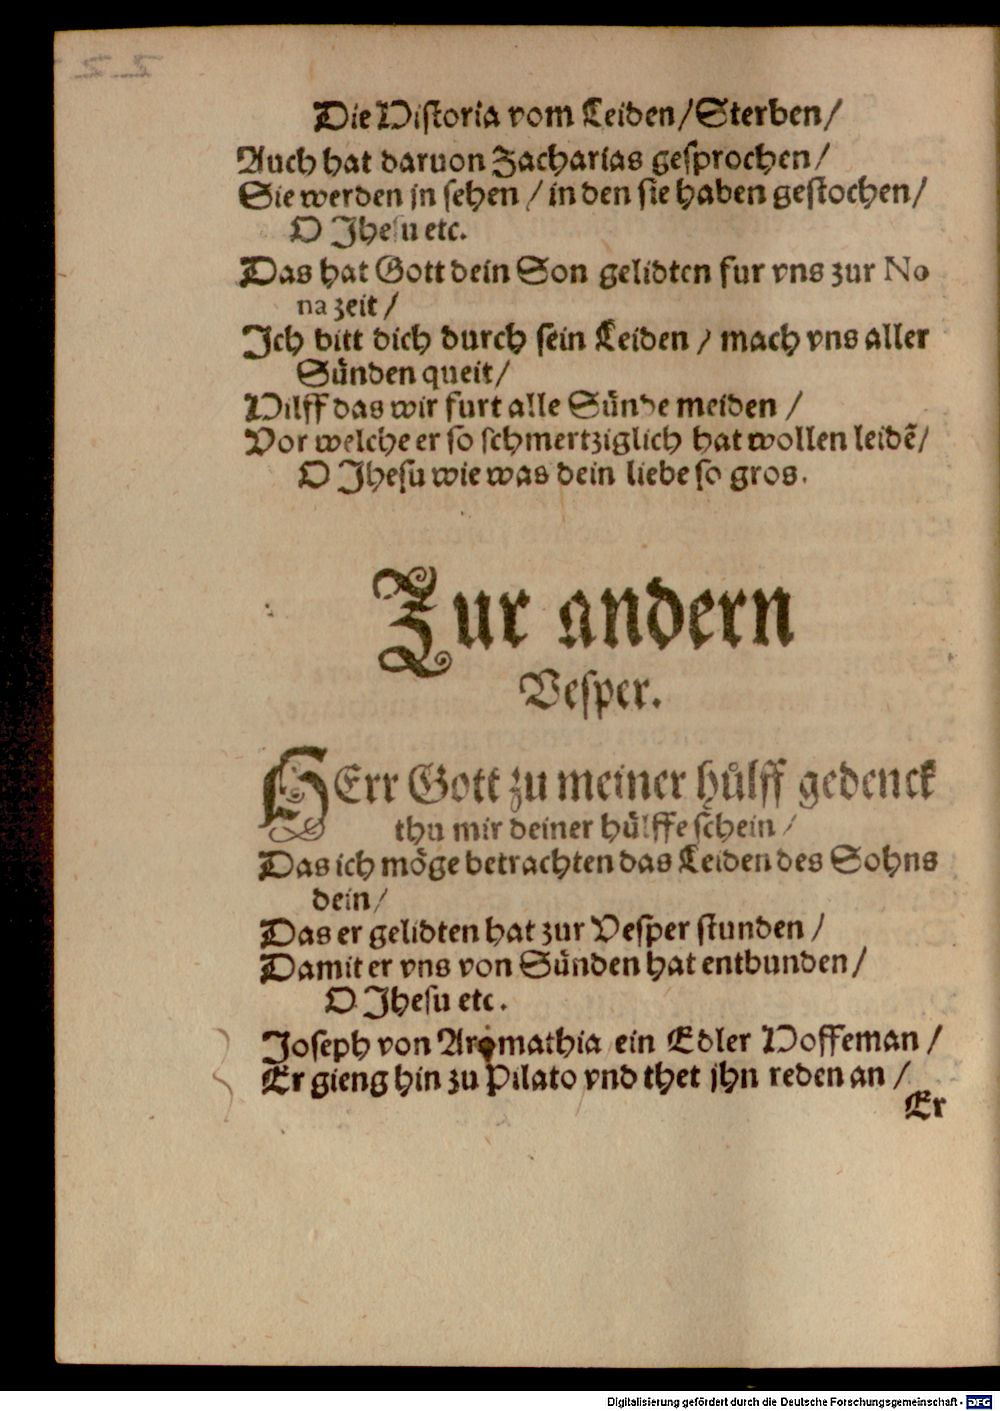 Die Historia vom Leiden/Sterben/
Auch hat daruon Zacharias gesprochen/
Sie werden jn sehen / in den sie haben gestochen/
O Jhesu etc.
Das hat Gott dein Son gelidten fur vns zur No
na zeit /
Ich bitt dich durch sein Leiden / mach vns aller
Sünden queit/
Hilff das wir furt alle Sünde meiden /
Vor welche er so schmertziglich hat wollen leidē/
O Jhesu wie was dein liebe so gros.
Zur andern
Vesper.
HErr Gott zu meiner hülff gedenck
thu mir deiner hülffe schein /
Das ich möge betrachten das Leiden des Sohns
dein /
Das er gelidten hat zur Vesper stunden /
Damit er vns von Sünden hat entbunden /
O Jhesu etc.
Joseph von Aromathia ein Edler Hoffeman /
Er gieng hin zu Pilato vnd thet jhn reden an /
Er
Digitalisierung gefördert durch die Deutsche Forschungsgemeinschaft - DFG